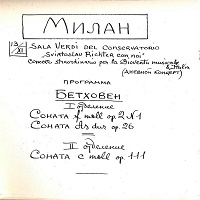 МИЛАН
13/XI
SALA VERDI DEL CONSERVATORIO
"Sviatoslav Richter con noi"
Concerto straordinario per la Gioventù musicale
d'Italia
(дневной концерт)
ПРОГРАММА
БЕТХОВЕН
I отделение
СОНАТА f moll op. 2 N1
СОНАТА As dur op. 26
II отделение
СОНАТА c moll op. 111